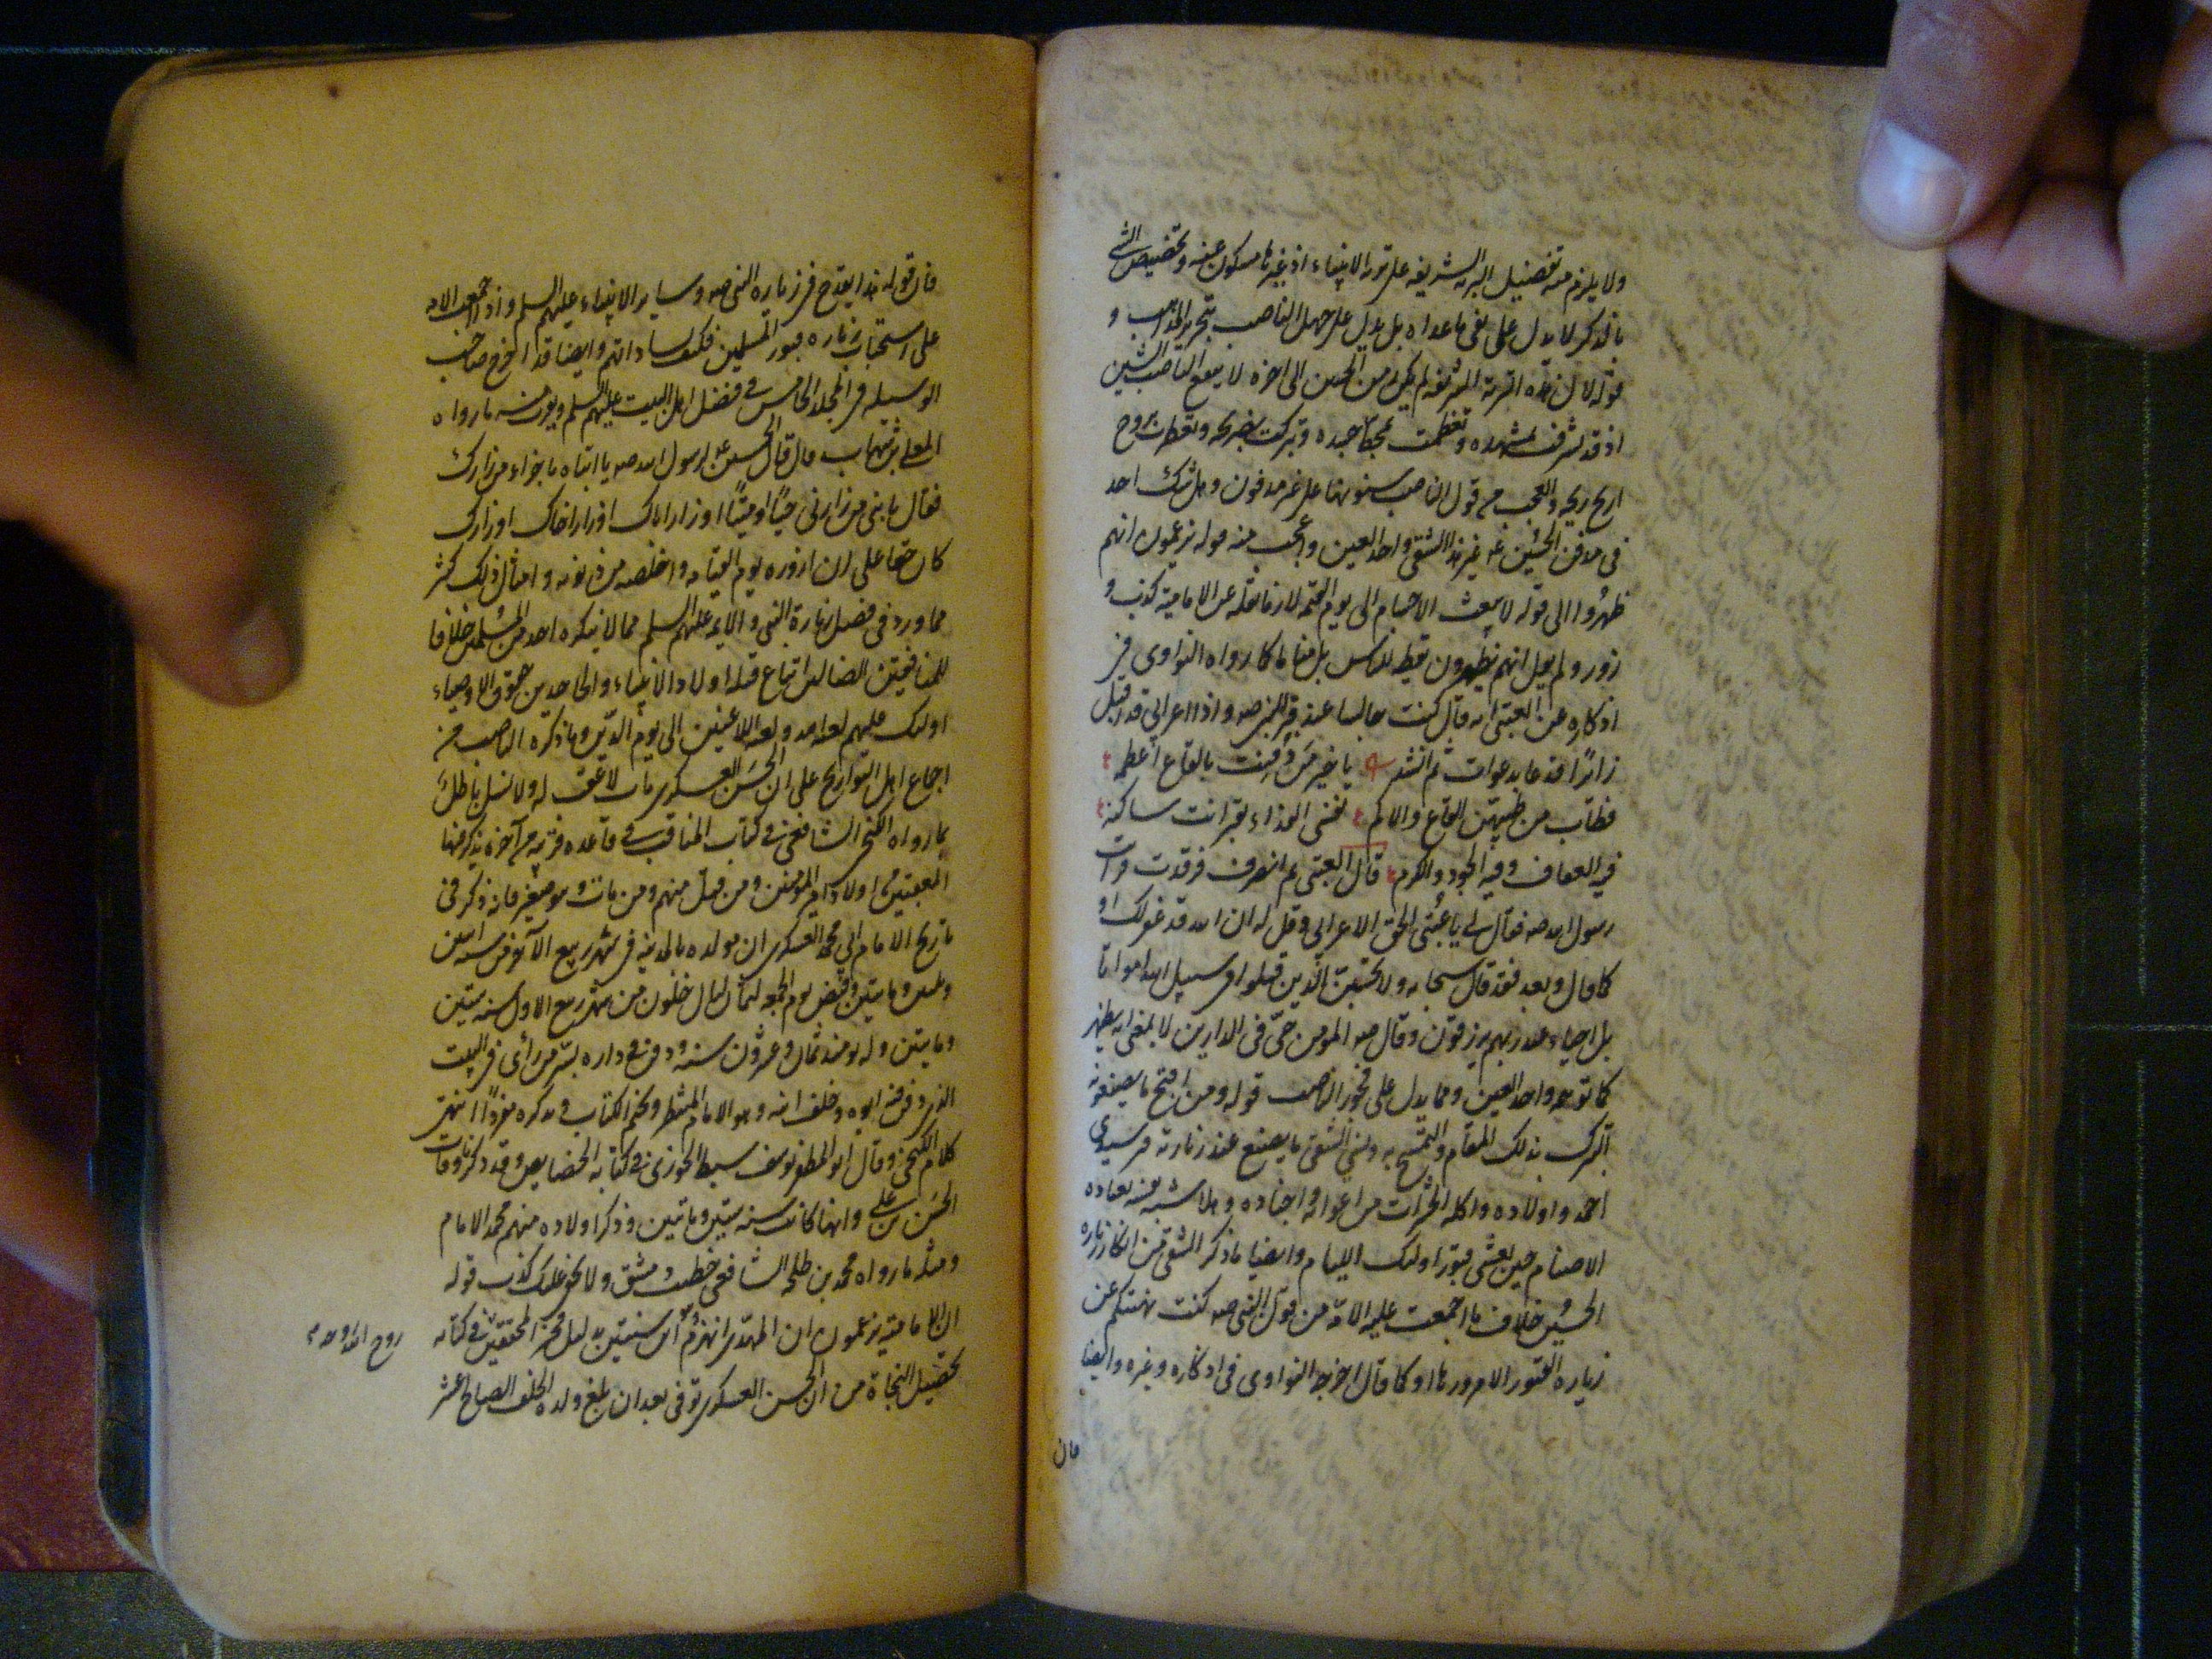 ولا يلزم منه تفضيل التربة الشريفة على تربة الانبياء اذ غيرها مسكوت عنه وتخصيص الشئ
بالذكر لا يدل على نفى ما عداه بل يدل على جهل الناصب بتحرير المذهب و
قوله لان هذه التربة المشرفة لم يكن من الحسين الى اخره لا ينفع الناصب الشين
اذ قد تشرفت بمشهده وتعظمت بمحط جسده وتبركت بضريحه وتعطرت بروح
اريج ريحه والعجب من قول الناصب سنوبها على غير مدفون وهل شك احد
فى مدفن الحسين عم غير هذا الشقى واحد العين واعجب منه قوله يزعمون انهم
ظهروا الى قوله لا يبعث الاجسام الى يوم القيمة لان ما نقله عن الامامية كذب و
زور ولم يقل انهم يظهرون يقظة للناس بل مناما كما رواه النواوى فى
اذكاره عن العتبى انه قال كنت جالسا عند قبر النبى صه واذا اعرابى قد اقبل
زائرا فدعا بدعوات ثم انشد يا خير من دفنت بالقاع اعظمه
فطاب من طيبهن القاع والاكم نفسى الفداء لقبر انت ساكنه
فيه العفاف وفيه الجود والكرم قال العتبى ثم انصرف فرقدت فرات
رسول الله صه فقال لى يا عتبى الحق الاعرابى وقل له ان الله قد غفر لك او
كما قال وبعد فقد قال سبحانه ولا تحسبن الذين قتلوا فى سبيل الله امواتا
بل احياء عند ربهم يرزقون وقال صه المؤمن حى فى الدارين لا بمعنى انه يظهر
كما توهمه واحد العين ومما يدل على فجور الناصب قوله ومن اقبح ما يصنعونه
التبرك بذلك المقام والتمسح به ونسى الشقى ما يصنع عند زيارته قبر سيدى
احمد واولاده واكله الحشرات من اعوانه واجناده وهلا شبه نفسه بعباده
الاصنام حين يغشى قبور اولئك اللئام وايضا ما ذكر الشقى من انكار زياره
الحسين خلاف ما اجمعت عليه الامة من قول النبى صه كنت نهيتكم عن
زيارة القبور الا فزوروها او كما قال اخرجه النواوى فى اذكاره وغيره وايضا
فان
فان قوله هذا يقدح فى زياره النبى صه وساير الانبياء عليهم السلم واذ اجمعت الامة
على استحباب زيارة قبور المسلمين فكيف ساداتهم وايضا قد اخرج صاحب
الوسيله فى المجلد الخامس فى فضل اهل البيت عليهم السلم ما رواه
المعلى بن شهاب قال قال الحسين عم لرسول الله صه يا ابتاه ما جزاء من زارك
فقال يا بنى من زارنى حيا او ميتا او زار اباك او زار اخاك او زارك
كان حقا على ان ازوره يوم القيامه واخلصه من ذنوبه وامثال ذلك كثير
مما ورد فى فضل زيارة النبى والائمة عليهم السلم مما لا ينكره احد من المسلمين خلافا
للمنافقين الضالين اتباع قتلة اولاد الانبياء والجاحدين حقوق الاوصياء
اولئك عليهم لعنة الله ولعنة اللاعنين الى يوم الدين وما ذكره الناصب من
اجماع اهل التواريخ على ان الحسن العسكرى مات لا عقب له ولا نسل باطل
بما رواه الكنجى الشافعى فى كتاب المناقب فى قاعده من آخره يذكر فيها
المعقبين من اولاد امير المؤمنين ومن قتل منهم ومن مات وهو صغير فانه ذكر فى
تاريخ الامام ابى محمد العسكرى ان مولده بالمدينة فى شهر ربيع الآخر من سنه اثنين
وثلثين ومايتين وقبض يوم الجمعة لثمان ليال خلون من شهر ربيع الاول سنه ستين
ومايتين وله يومئذ ثمان وعشرون سنه ودفن فى داره بسر من رأى فى البيت
الذى دفن فيه ابوه وخلف ابنه وهو الامام المنتظر ونختم الكتاب فى ذكره مفردا انتهى
كلام الكنجى وقال ابو المظفر يوسف سبط الجوزى فى كتابه الخصايص وقد ذكر وفات
الحسن بن على وانها كانت سنه ستين ومايتين وذكر اولاده منهم محمد الامام
ومثله ما رواه محمد بن طلحة الشافعى خطيب دمشق ولا يخفى عليك كذب قوله
ان الامامية يزعمون ان المهدى ابن سنتين بدليل فخر المحققين فى كتابه
تحصيل النجاة من ان الحسن العسكرى توفى بعد ان بلغ ولده الخلف الصالح عشر